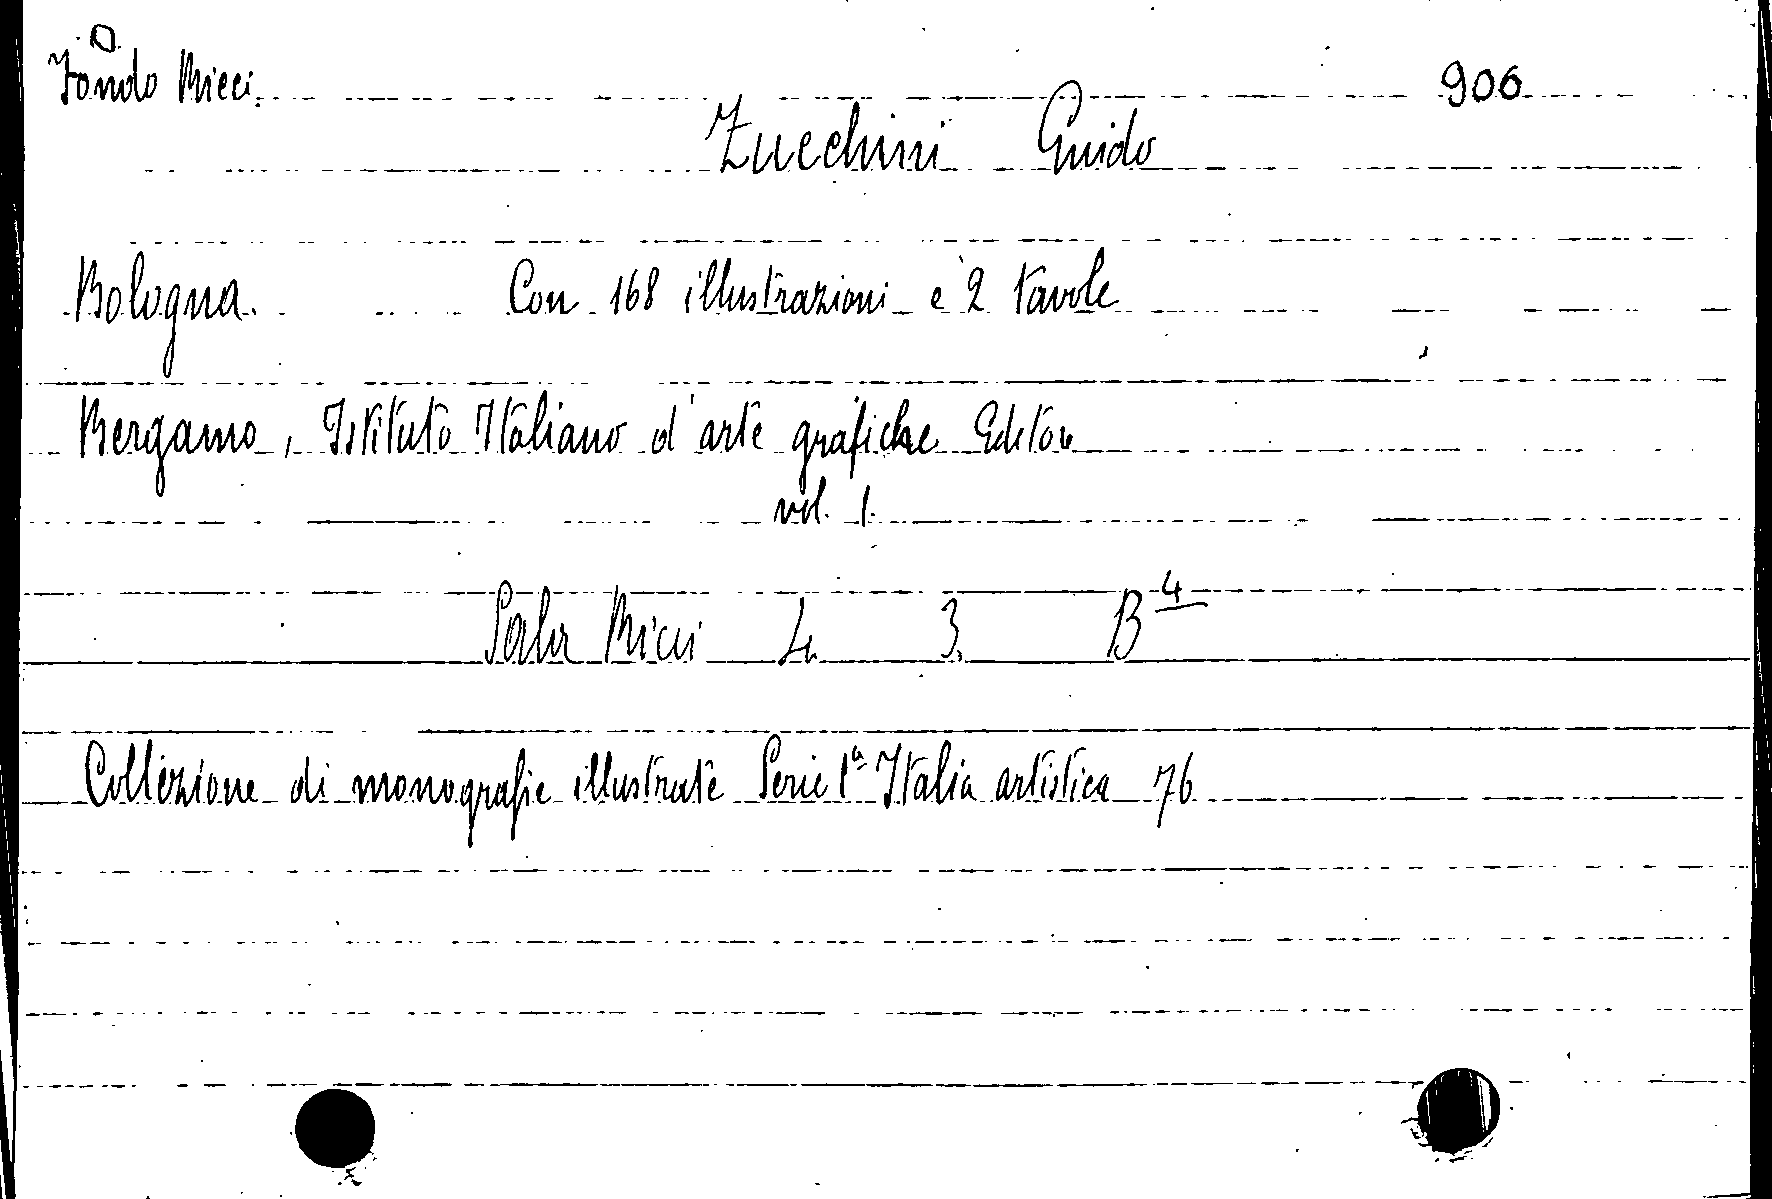 Fondo Ricci. 906
Zucchini Guido
Bologna. Con 168 illustrazioni e 2 tavole
Bergamo, Istituto Italiano d'arte grafiche Editore
vol. 1.
Sala Ricci L. 3. B 4
Collezione di monografie illustrate Serie 1ª Italia artistica 76